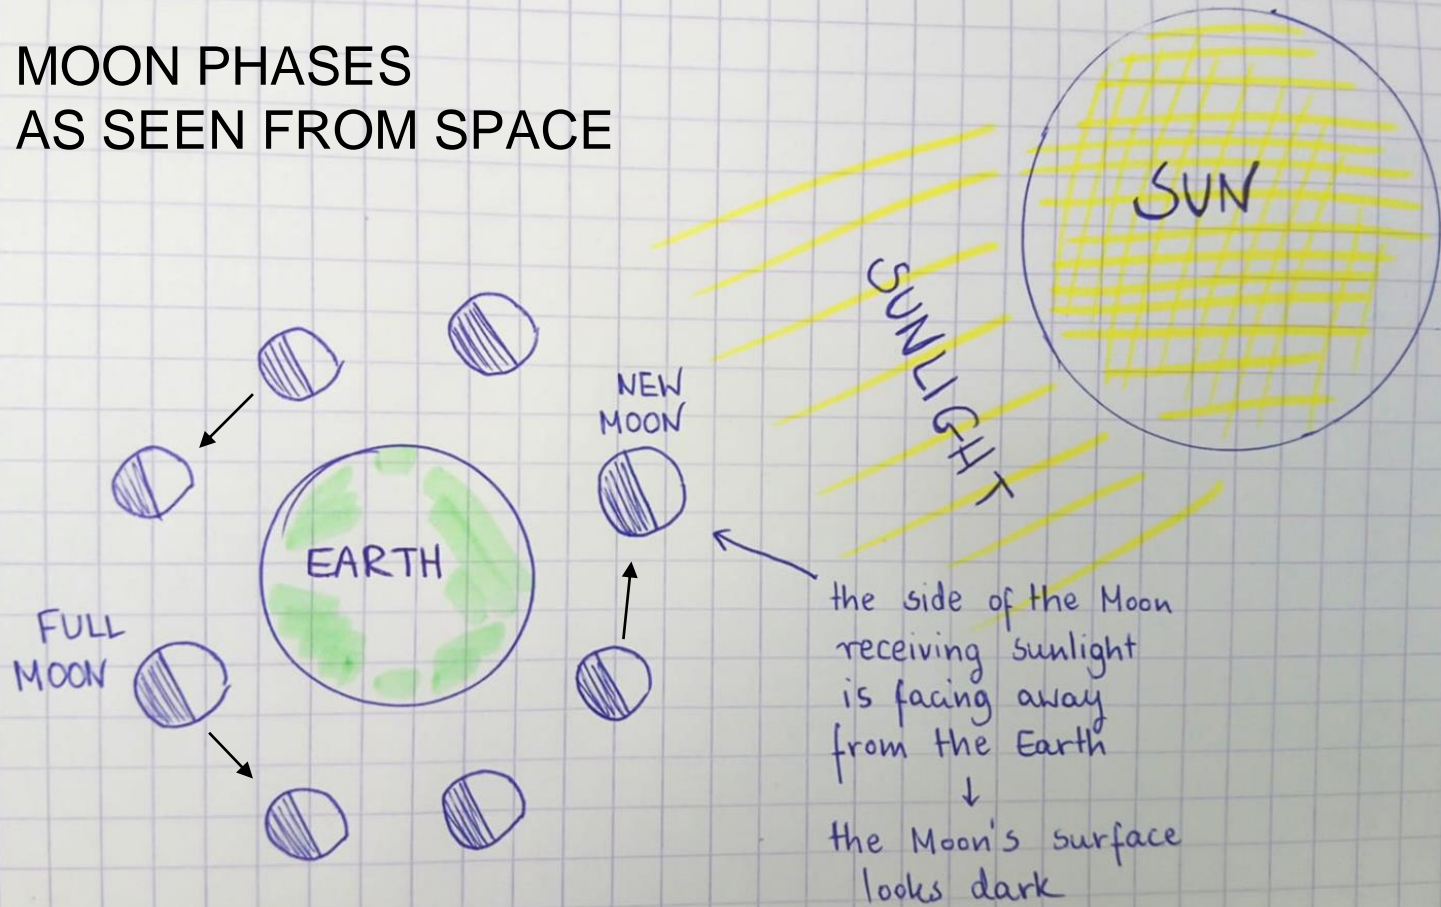 MOON PHASES
AS SEEN FROM SPACE
SUN
SUNLIGHT
NEW
MOON
EARTH
FULL
MOON
the side of the Moon
receiving sunlight
is facing away
from the Earth
↓
the Moon's surface
looks dark